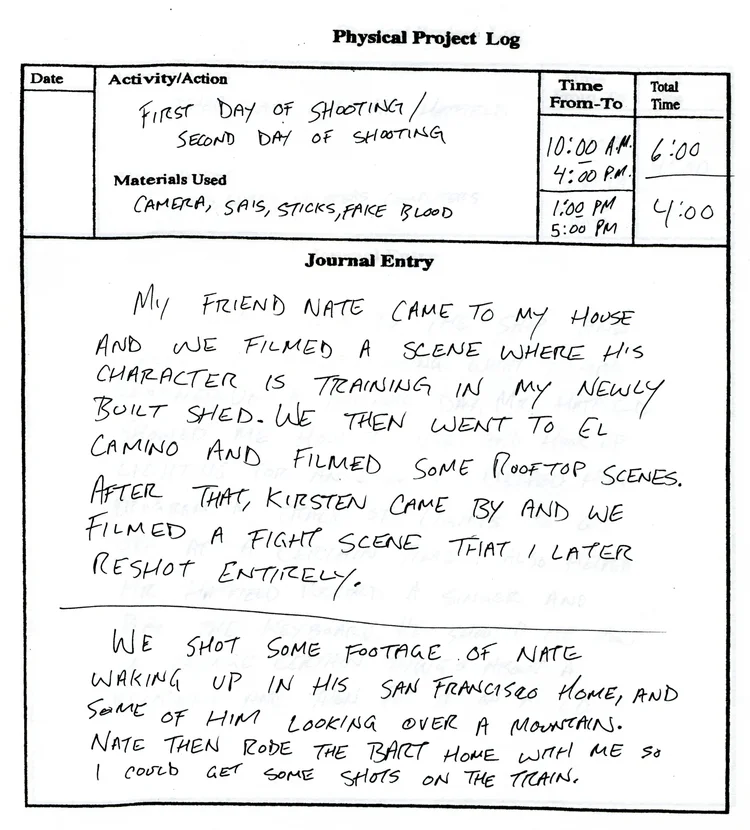 Physical Project Log
Date
Activity/Action
FIRST DAY OF SHOOTING/
SECOND DAY OF SHOOTING
Materials Used
CAMERA, SAIS, STICKS, FAKE BLOOD
Time
From-To
10:00 A.M.
4:00 P.M.
1:00 PM
5:00 PM
Total
Time
6:00
4:00
Journal Entry
MY FRIEND NATE CAME TO MY HOUSE
AND WE FILMED A SCENE WHERE HIS
CHARACTER IS TRAINING IN MY NEWLY
BUILT SHED. WE THEN WENT TO EL
CAMINO AND FILMED SOME ROOFTOP SCENES.
AFTER THAT, KIRSTEN CAME BY AND WE
FILMED A FIGHT SCENE THAT I LATER
RESHOT ENTIRELY.
WE SHOT SOME FOOTAGE OF NATE
WAKING UP IN HIS SAN FRANCISCO HOME, AND
SOME OF HIM LOOKING OVER A MOUNTAIN.
NATE THEN RODE THE BART HOME WITH ME SO
I COULD GET SOME SHOTS ON THE TRAIN.